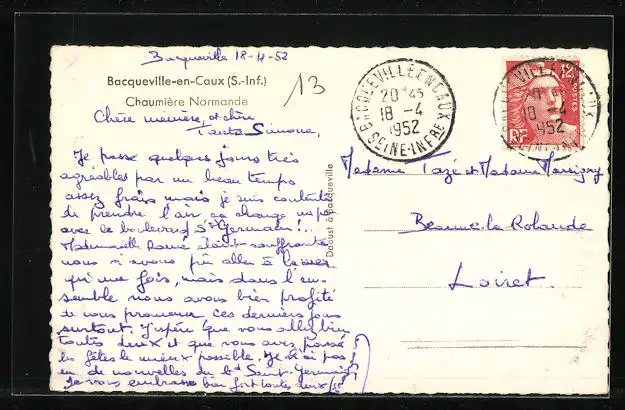 Bacqueville 18-4-52
Bacqueville-en-Caux (S.-Inf.)
Chaumière Normande
13
Chère mémère, et chère
Tante Simone,
Je passe quelques jours très
agréables par un beau temps
assez frais mais je suis contente
de prendre l'air, ça change un peu
avec le boulevard St Germain!...
Mademoiselle étant souffrante
nous n'avons pu aller à la mer
qu'une fois, mais dans l'en-
semble nous avons bien profité
de nous promener, ces derniers jours
surtout. J'espère que vous allez bien
toutes deux et que vous avez passé
les fêtes le mieux possible. Je n'ai pas
eu de nouvelles du bd Saint-Germain
Je vous embrasse bien fort toutes deux
Daoust à Bacqueville
BACQUEVILLE EN CAUX
20H45
18 -4
1952
SEINE-INFRE
12F
POSTES
RF
18 -4
1952
Madame Tazé et Madame Marsigny
Beaune-la-Rolande
Loiret.